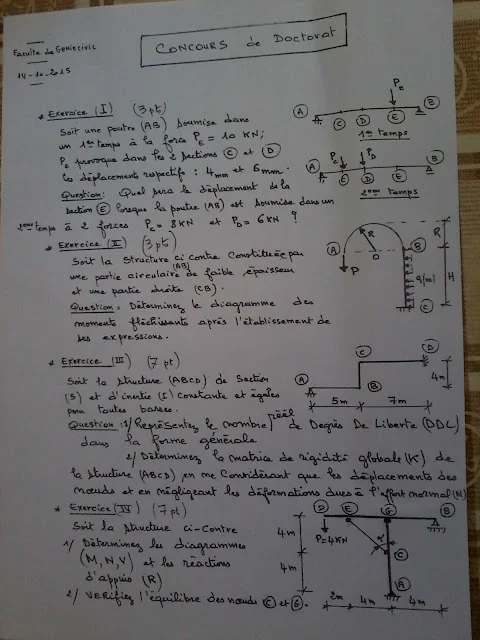 Faculté de Genie civil
CONCOURS de Doctorat
14-10-2015
* Exercice (I) (3pt)
Soit une poutre (AB) soumise dans
un 1er temps à la force PE = 10 KN;
PE provoque dans les 2 sections C et D
les déplacements respectifs : 4mm et 6mm.
Question: Quel sera le déplacement de la
section E lorsque la poutre (AB) est soumise dans un
2ème temps à 2 forces PC = 8KN et PD = 6KN ?
A C D E B
PE
1er temps
A C D E B
PC PD
2ème temps
* Exercice (II) (3pt)
Soit la structure ci contre Constituée par
une partie circulaire (AB) de faible épaisseur
et une partie droite (CB).
Question: Déterminez le diagramme des
moments fléchissants après l'établissement de
ses expressions.
A R O B R
P q(/m) H
C
* Exercice (III) (7pt)
Soit la structure (ABCD) de Section
(S) et d'inertie (I) Constante et égales
pour toutes barres.
Question: 1/ Représentez le nombre réel de Degrès De Liberté (DDL)
dans la forme générale
2/ Déterminez la matrice de rigidité globale (K) de
la structure (ABCD) en ne Considérant que les déplacements des
nœuds et en négligeant les déformations dues à l'effort normal (N)
C D
A B 4m
5m 7m
* Exercice (IV) (7pt)
Soit la structure ci-Contre
1/ Déterminez les diagrammes
(M, N, V) et les réactions
d'appuis (R)
2/ VERIfiez l'équilibre des nœuds C et G.
D E G B
P=4KN 4m α
C
4m
A
2m 4m 4m